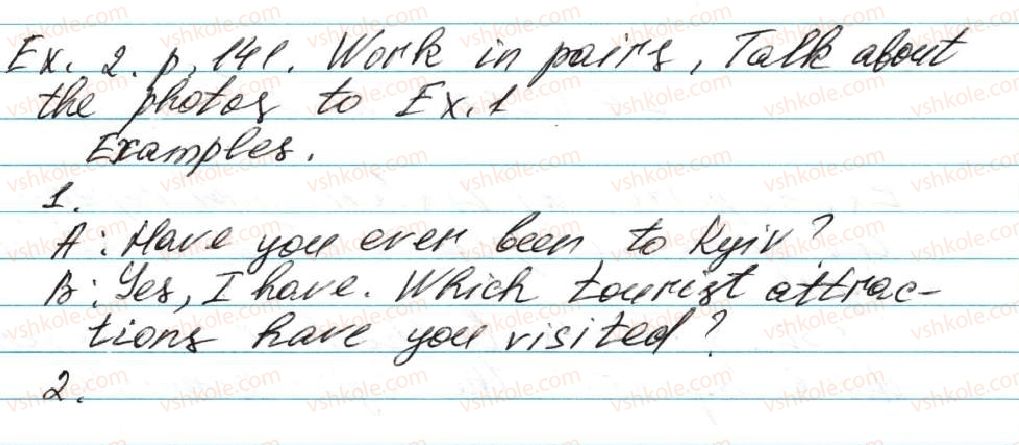 Ex. 2. p. 141. Work in pairs, Talk about
the photos to Ex. 1
Examples.
1.
A: Have you ever been to Kyiv?
B: Yes, I have. Which tourist attrac-
tions have you visited?
2.